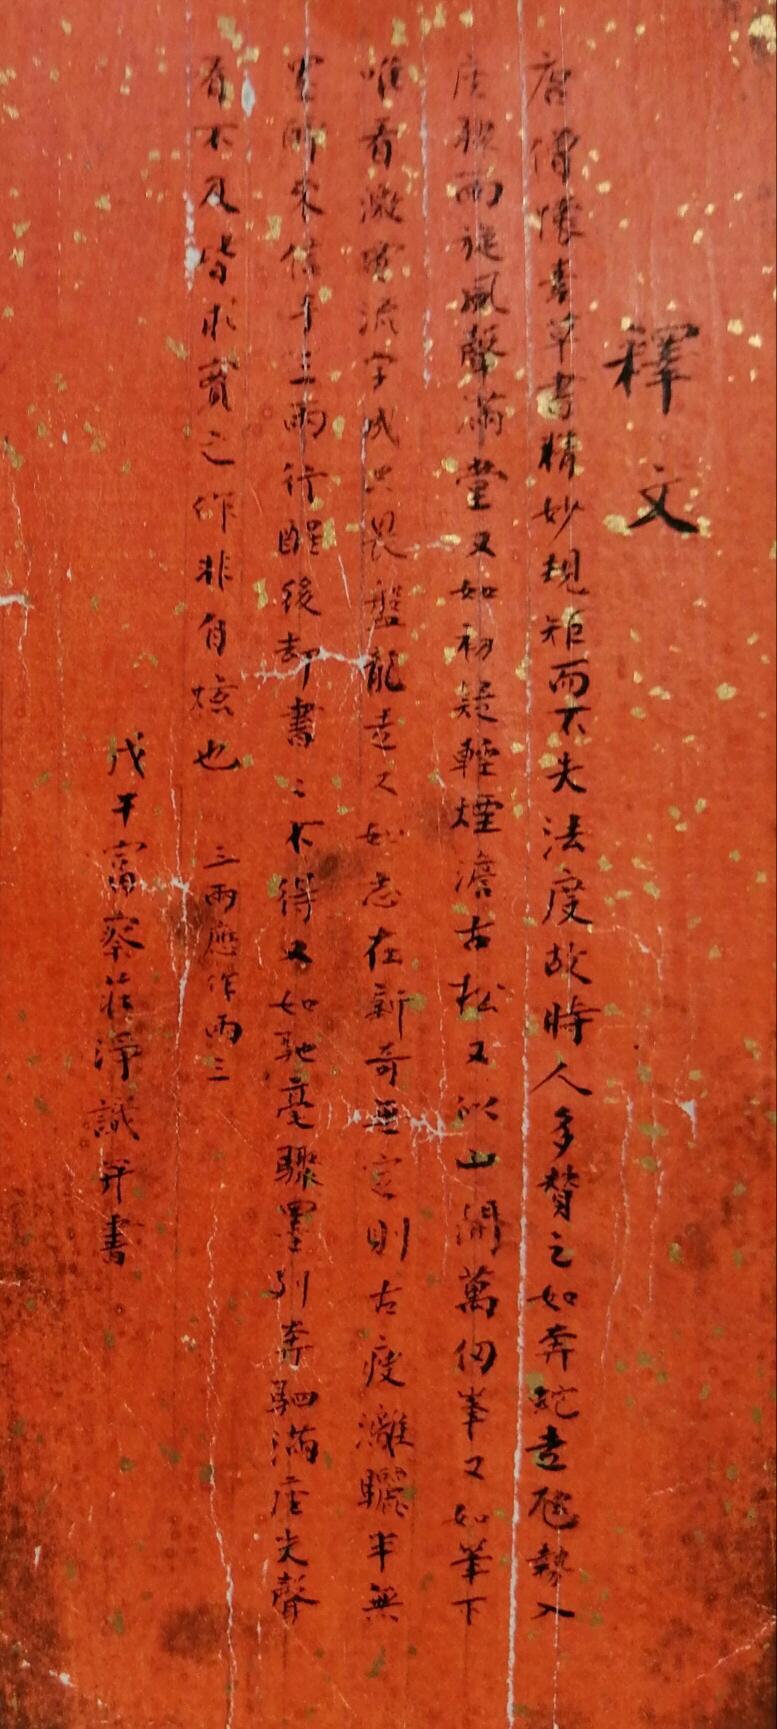 釋文
唐僧懷素草書精妙規矩而不失法度故時人多贊之如奔蛇走虺勢入
座驟雨旋風聲滿堂又如初疑輕煙澹古松又似山開萬仞峯又如筆下
唯看激電流字成只畏盤龍走又如志在新奇無定則古瘦灕驪半無
墨醉來信手三兩行醒後却書〻不得又如馳毫驟墨列奔駟滿座失聲
看不及皆求實之作非自炫也
三兩應作兩三
戊午富察莊淨識并書